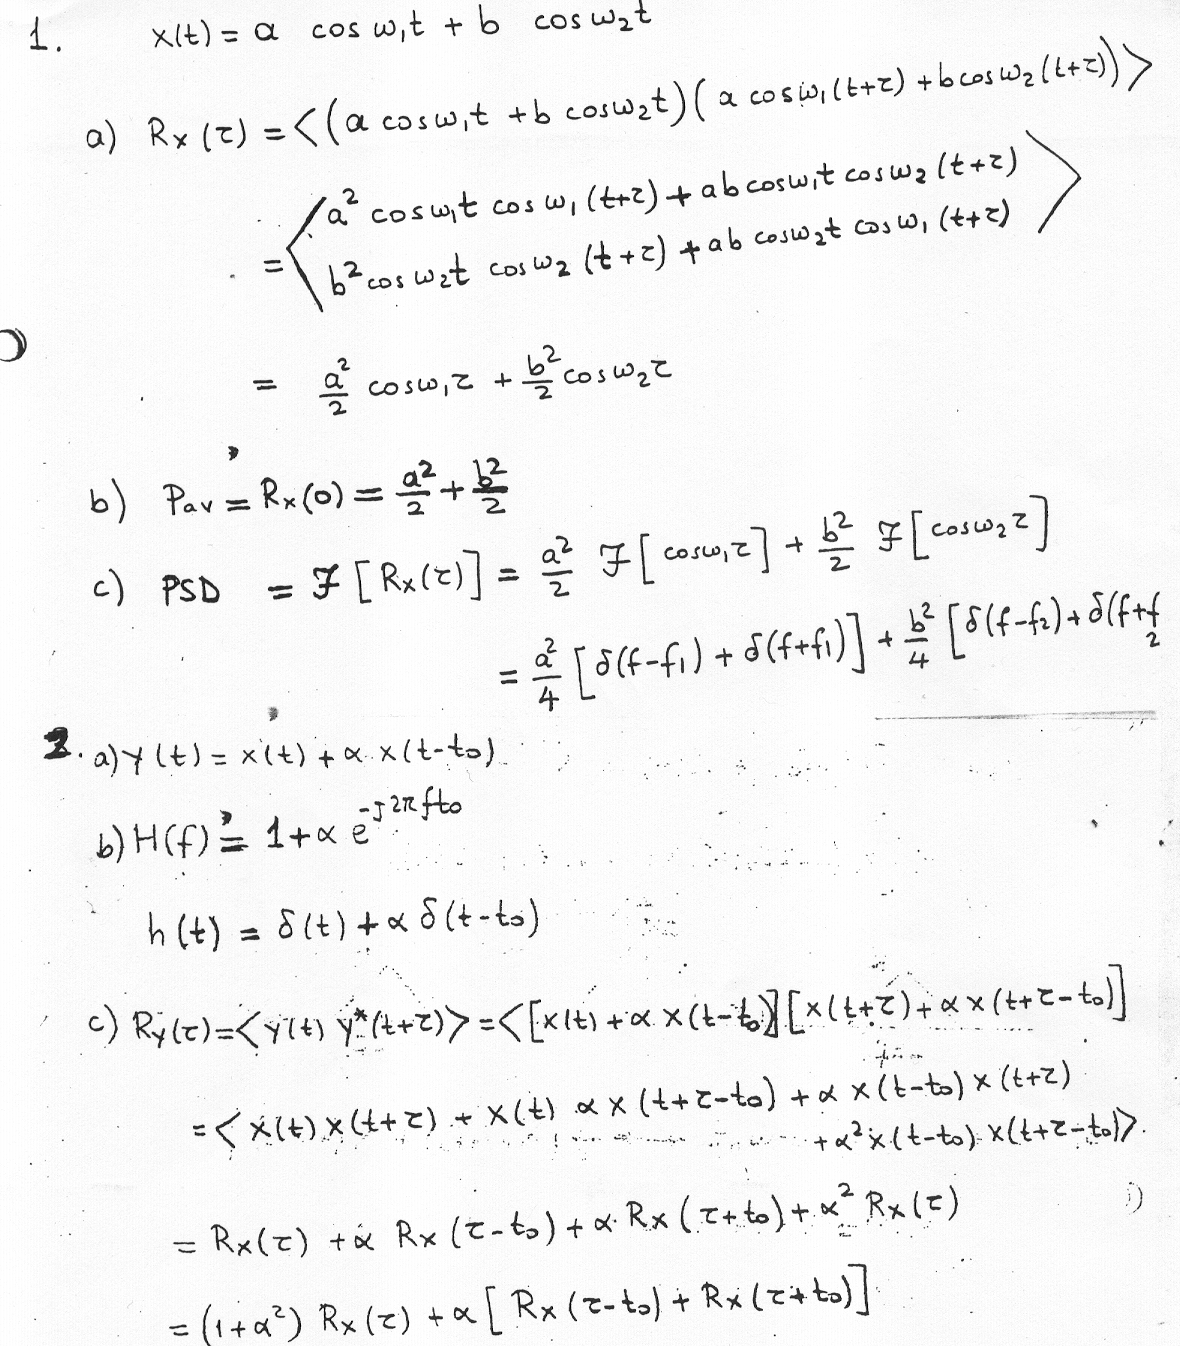 1. x(t) = a cos ω₁t + b cos ω₂t
a) Rx(τ) = <(a cos ω₁t + b cos ω₂t)(a cos ω₁(t+τ) + b cos ω₂(t+τ))>
= <a² cos ω₁t cos ω₁(t+τ) + ab cos ω₁t cos ω₂(t+τ)
b² cos ω₂t cos ω₂(t+τ) + ab cos ω₂t cos ω₁(t+τ)>
= a²/2 cos ω₁τ + b²/2 cos ω₂τ
b) Pav = Rx(0) = a²/2 + b²/2
c) PSD = ℱ[Rx(τ)] = a²/2 ℱ[cos ω₁τ] + b²/2 ℱ[cos ω₂τ]
= a²/4 [δ(f-f₁) + δ(f+f₁)] + b²/4 [δ(f-f₂) + δ(f+f₂
2. a) Y(t) = x(t) + α x(t-t₀)
b) H(f) = 1 + α e^(-j2πft₀)
h(t) = δ(t) + α δ(t-t₀)
c) Ry(τ) = <y(t) y*(t+τ)> = <[x(t) + α x(t-t₀)][x(t+τ) + α x(t+τ-t₀)]
= <x(t) x(t+τ) + x(t) α x(t+τ-t₀) + α x(t-t₀) x(t+τ)
+ α² x(t-t₀) x(t+τ-t₀)>.
= Rx(τ) + α Rx(τ-t₀) + α Rx(τ+t₀) + α² Rx(τ)
= (1+α²) Rx(τ) + α [Rx(τ-t₀) + Rx(τ+t₀)]